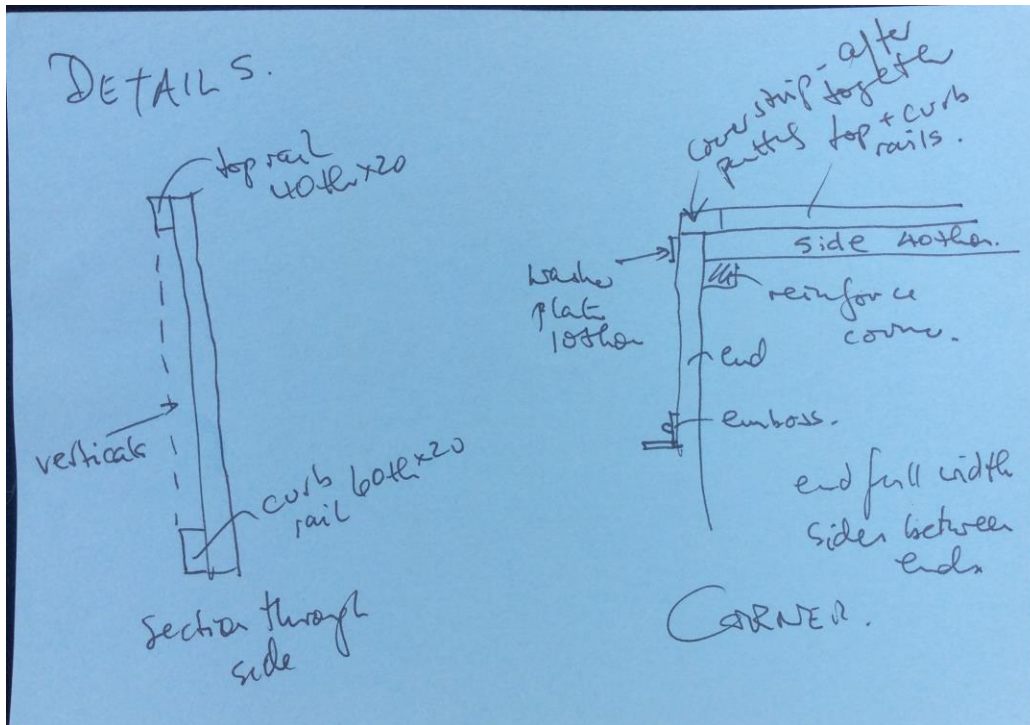 DETAILS.
top rail
40th x 20
verticals
curb
rail 60th x 20
section through
side
coverstrip - after
putting together
top + curb
rails.
side 40thou.
washer
plate
10thou
reinforce
corner.
end
emboss.
end full width
sides between
ends
CORNER.